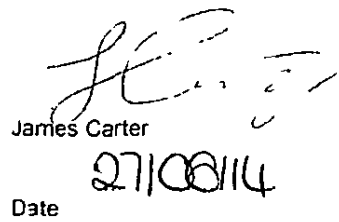 James Carter
27/08/14
Date